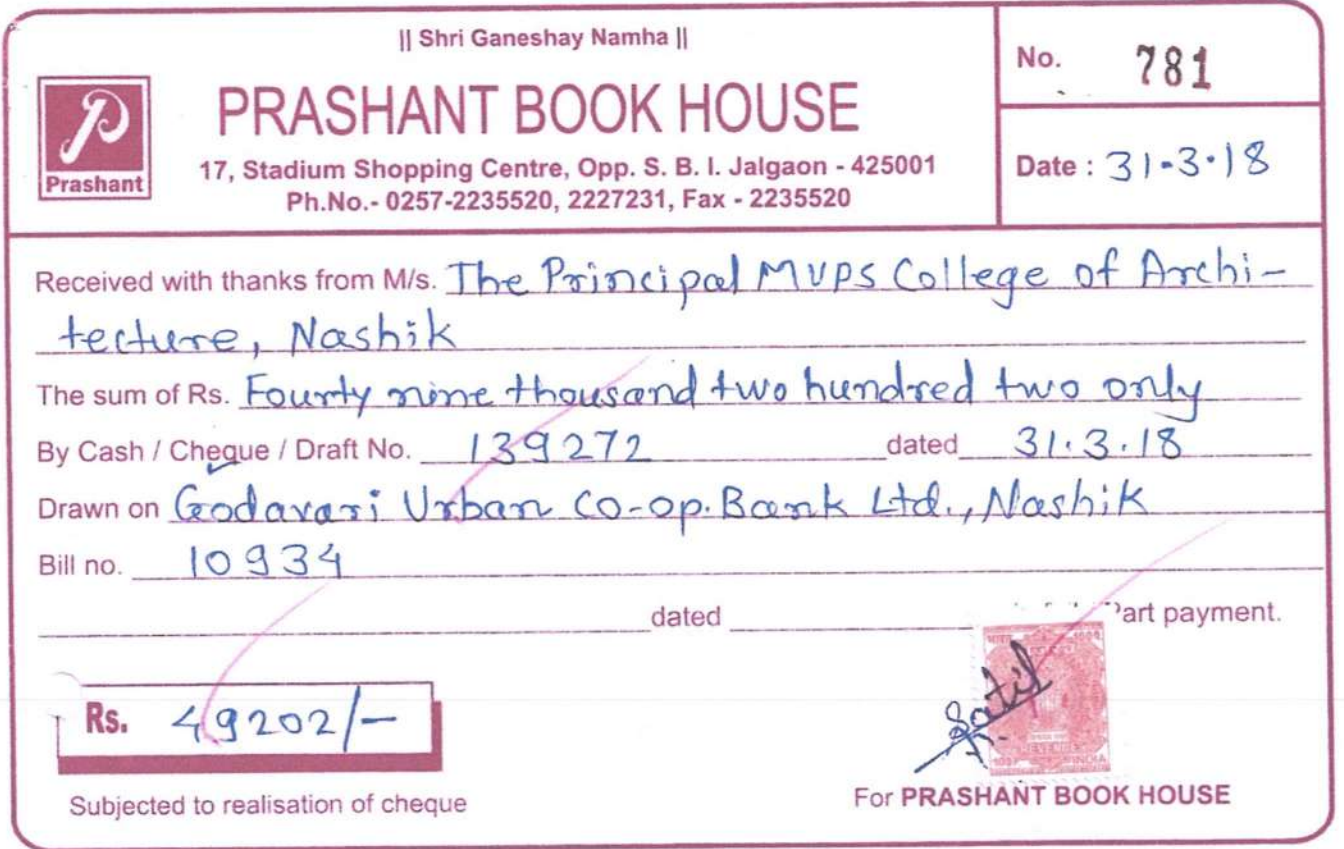 || Shri Ganeshay Namha ||
No. 781
Prashant
PRASHANT BOOK HOUSE
17, Stadium Shopping Centre, Opp. S. B. I. Jalgaon - 425001
Ph.No.- 0257-2235520, 2227231, Fax - 2235520
Date : 31-3-18
Received with thanks from M/s. The Principal MVPS College of Archi-
tecture, Nashik
The sum of Rs. Fourty nine thousand two hundred two only
By Cash / Cheque / Draft No. 139272 dated 31.3.18
Drawn on Godavari Urban Co-op. Bank Ltd., Nashik
Bill no. 10934
dated Part payment.
Rs. 49202/-
REVENUE
INDIA
Subjected to realisation of cheque
For PRASHANT BOOK HOUSE